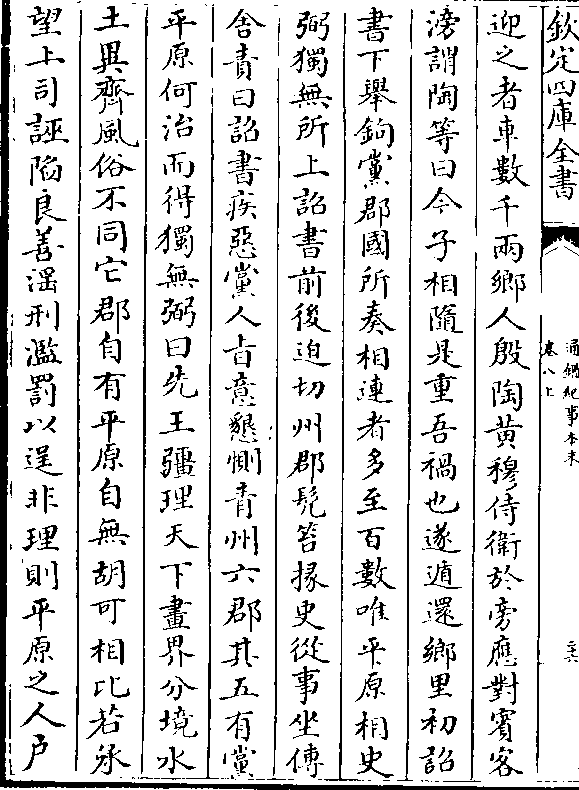 欽定四庫全書
通鑑紀事本末
卷八上
二六
迎之者車數千兩鄉人殷陶黃穆侍衛於旁應對賓客
滂謂陶等曰今子相隨是重吾禍也遂遁還鄉里初詔
書下舉鉤黨郡國所奏相連者多至百數唯平原相史
弼獨無所上詔書前後迫切州郡髠笞掾史從事坐傳
舍責曰詔書疾惡黨人㫖意懇惻青州六郡其五有黨
平原何治而得獨無弼曰先王疆理天下畫界分境水
土異齊風俗不同它郡自有平原自無胡可相比若承
望上司誣陷良善淫刑濫罰以逞非理則平原之人户